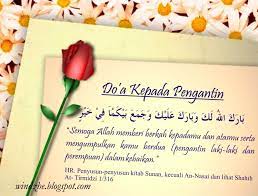 Do'a Kepada Pengantin
بَارَكَ اللهُ لَكَ وَبَارَكَ عَلَيْكَ وَجَمَعَ بَيْنَكُمَا فِي خَيْرٍ
"Semoga Allah memberi berkah kepadamu dan atasmu serta
mengumpulkan kamu berdua (pengantin laki-laki dan
perempuan) dalam kebaikan."
HR. Penyusun-penyusun kitab Sunan, kecuali An-Nasai dan lihat Shahih
At- Tirmidzi 1/316